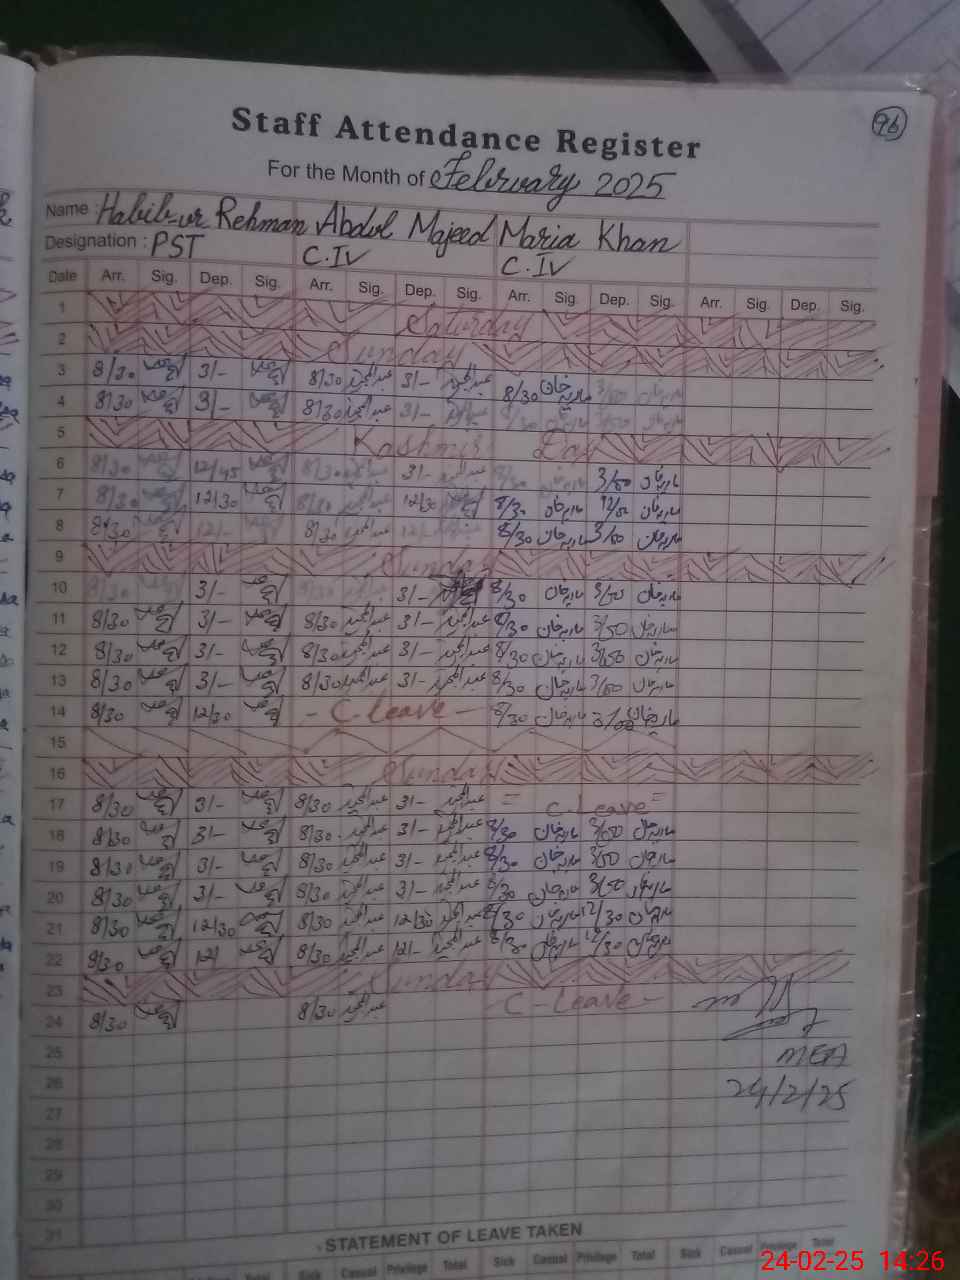 96
Staff Attendance Register
For the Month of February 2025
Name : Habib-ur Rehman Abdul Majeed Maria Khan
Designation : PST C.IV C.IV
Date Arr. Sig. Dep. Sig. Arr. Sig. Dep. Sig. Arr. Sig. Dep. Sig. Arr. Sig. Dep. Sig.
1 Saturday
2 Sunday
3 8/30 3/- 8/30 عبدالمجید 3/- عبدالمجید 8/30 ماریہ خان 3/00 ماریہ خان
4 8/30 3/- 8/30 عبدالمجید 3/- 8/30 3/00
5 Kashmir Day
6 8/30 12/45 8/30 3/- عبدالمجید 3/00 ماریہ خان
7 8/30 12/30 8/30 12/30 8/30 ماریہ خان 12/00 ماریہ خان
8 8/30 12/- 8/30 عبدالمجید 12/- 8/30 ماریہ خان 3/00 ماریہ خان
9 Sunday
10 3/- 3/- 8/30 ماریہ خان 3/00 ماریہ خان
11 8/30 3/- 8/30 عبدالمجید 3/- عبدالمجید 8/30 ماریہ خان 3/00 ماریہ خان
12 8/30 3/- 8/30 عبدالمجید 3/- عبدالمجید 8/30 ماریہ خان 3/00 ماریہ خان
13 8/30 3/- 8/30 عبدالمجید 3/- عبدالمجید 8/30 ماریہ خان 3/00 ماریہ خان
14 8/30 12/30 - C. Leave - 8/30 ماریہ خان 3/00 ماریہ خان
15
16 Sunday
17 8/30 3/- 8/30 عبدالمجید 3/- عبدالمجید = C. Leave =
18 8/30 3/- 8/30 عبدالمجید 3/- عبدالمجید 8/30 ماریہ خان 3/00 ماریہ خان
19 8/30 3/- 8/30 عبدالمجید 3/- عبدالمجید 8/30 ماریہ خان 3/00 ماریہ خان
20 8/30 3/- 8/30 عبدالمجید 3/- عبدالمجید 8/30 ماریہ خان 3/00 ماریہ خان
21 8/30 12/30 8/30 عبدالمجید 12/30 عبدالمجید 8/30 ماریہ خان 12/30 ماریہ خان
22 8/30 12/ 8/30 عبدالمجید 12/- عبدالمجید 8/30 ماریہ خان 12/30 ماریہ خان
23 Sunday
24 8/30 8/30 عبدالمجید C - Leave -
25 MEA
26 24/2/25
27
28
29
30
31
STATEMENT OF LEAVE TAKEN
Total Sick Casual Privilege Total Sick Casual Privilege Total Sick Casual Privilege Total
24-02-25 14:26